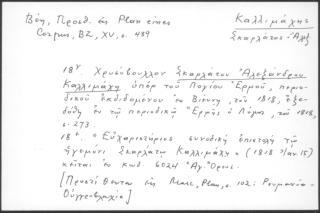 Βέη, Προσθ. εις Plan eines
Corpus, BZ, XV, σ. 489
Καλλιμάχης
Σκαρλάτος-Αλεξ
18γ. Χρυσόβουλλον Σκαρλάτου Αλεξάνδρου
Καλλιμάχη υπέρ του Λογίου Ερμού, περιο-
δικού εκδιδομένου εν Βιέννη, του 1818, εξε-
δόθη εν τω περιοδικώ "Ερμής ο Λόγιος, του 1818,
σ. 273.
18δ. "Ευχαριστήριος συνοδική επιστολή τω
ηγεμόνι Σκαρλάτω Καλλιμάχη" (1818 Ιαν. 15)
κείται εν κωδ. 6024 Αγ. Όρους.
[Προστίθενται εις Marc, Plan, σ. 102: Ρουμανία-
Ουγγροβλαχία]